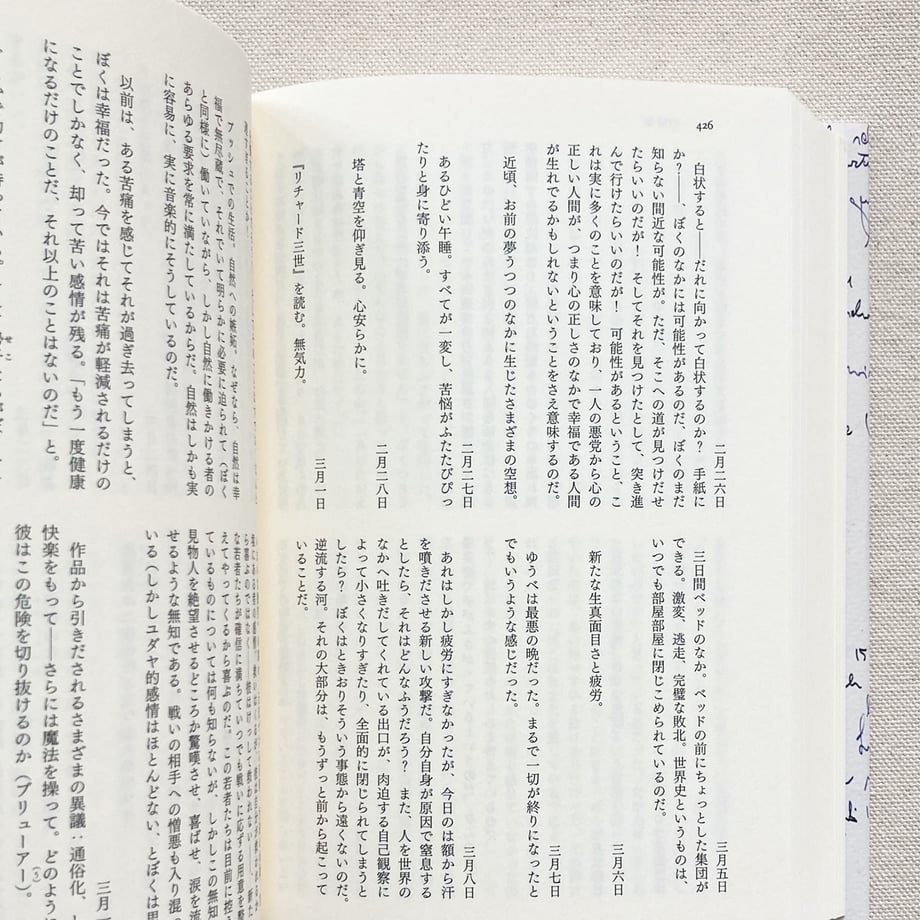 426
二月二六日
白状すると――だれに向かって白状するのか？　手紙に
か？――、ぼくのなかには可能性があるのだ、ぼくのまだ
知らない間近な可能性が。ただ、そこへの道が見つけだせ
たらいいのだが！　そしてそれを見つけたとして、突き進
んで行けたらいいのだが！　可能性があるということ、こ
れは実に多くのことを意味しており、一人の悪党から心の
正しい人間が、つまり心の正しさのなかで幸福である人間
が生れでるかもしれないということをさえ意味するのだ。
近頃、お前の夢うつつのなかに生じたさまざまの空想。
二月二七日
あるひどい午睡。すべてが一変し、苦悩がふたたびぴっ
たりと身に寄り添う。
二月二八日
塔と青空を仰ぎ見る。心安らかに。
三月一日
『リチャード三世』を読む。無気力。
三月五日
三日間ベッドのなか。ベッドの前にちょっとした集団が
できる。激変、逃走、完璧な敗北。世界史というものは、
いつでも部屋部屋に閉じこめられているのだ。
三月六日
新たな生真面目さと疲労。
三月七日
ゆうべは最悪の晩だった。まるで一切が終りになったと
でもいうような感じだった。
三月八日
あれはしかし疲労にすぎなかったが、今日のは額から汗
を噴きださせる新しい攻撃だ。自分自身が原因で窒息する
としたら、それはどんなふうだろう？　また、人を世界の
なかへ吐きだしてくれている出口が、肉迫する自己観察に
よって小さくなりすぎたり、全面的に閉じられてしまうと
したら？　ぼくはときおりそういう事態から遠くないのだ。
逆流する河。それの大部分は、もうずっと前から起こって
いることだ。
プッシュでの生活。自然への嫉妬。なぜなら、自然は幸
福で無尽蔵で、それでいて明らかに必要に迫られて（ぼく
と同様に）働いていながら、しかし自然に働きかける者の
あらゆる要求を常に満たしているからだ。自然はしかも実
に容易に、実に音楽的にそうしているのだ。
以前は、ある苦痛を感じてそれが過ぎ去ってしまうと、
ぼくは幸福だった。今ではそれは苦痛が軽減されるだけの
ことでしかなく、却って苦い感情が残る。「もう一度健康
になるだけのことだ、それ以上のことはないのだ」と。
な若者たちが確信に満ちていつでも戦いに応ずる用意を整
えてやってくるから喜ぶのだ。この若者たちは目前に控え
ているものについては何も知らないが、しかしこの無知
見物人を絶望させるどころか驚嘆させ、喜ばせ、涙を流
せるような無知である。戦いの相手への憎悪も入り混
いる（しかしユダヤ的感情はほとんどない、とぼくは思
三月
作品から引きだされるさまざまの異議：通俗化、し
快楽をもって――さらには魔法を操って。どのように
彼はこの危険を切り抜けるのか（ブリューアー）。